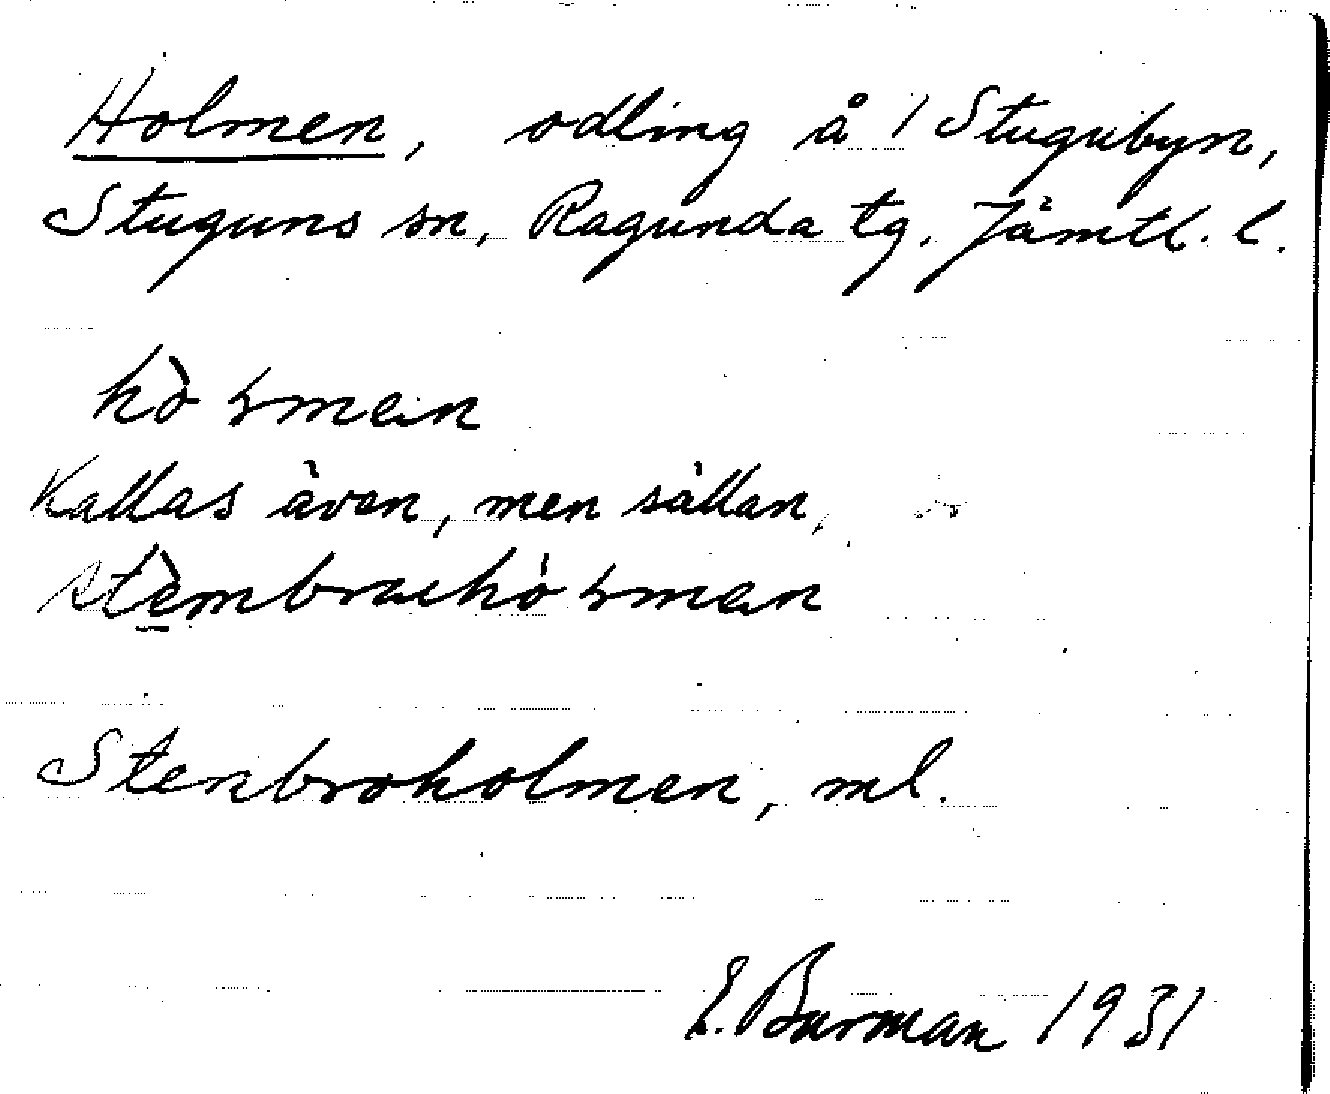 Holmen, odling å 1 Stugubyn,
Stuguns sn, Ragunda tg, Jämtl. l.
Kallas även, men sällan,
Stenbroholmen, ml.
E. Burman 1931